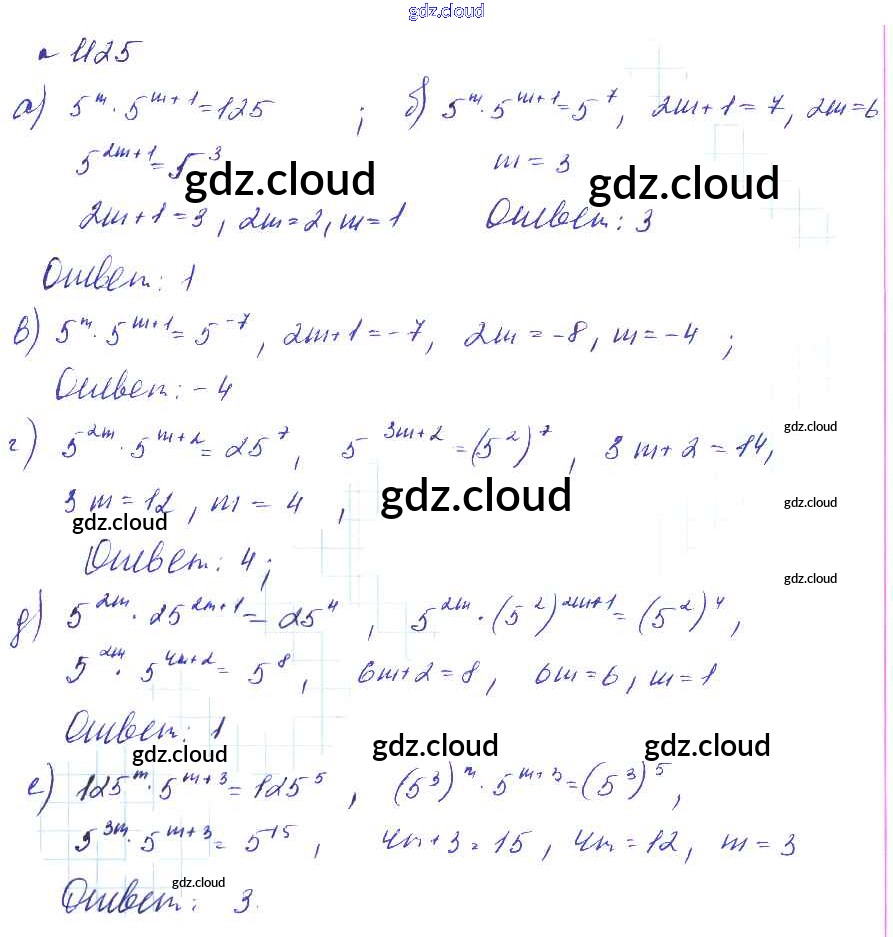 gdz.cloud
№ 1125
а) 5^m · 5^{m+1} = 125 ; б) 5^m · 5^{m+1} = 5^7, 2m+1 = 7, 2m = 6
5^{2m+1} = 5^3 m = 3
gdz.cloud gdz.cloud
2m+1 = 3, 2m = 2, m = 1 Ответ: 3
Ответ: 1
в) 5^m · 5^{m+1} = 5^{-7}, 2m+1 = -7, 2m = -8, m = -4 ;
Ответ: -4
gdz.cloud
г) 5^{2m} · 5^{m+2} = 25^7, 5^{3m+2} = (5^2)^7, 3m+2 = 14,
3m = 12, m = 4, gdz.cloud gdz.cloud
gdz.cloud
Ответ: 4; gdz.cloud
д) 5^{2m} · 25^{2m+1} = 25^4, 5^{2m} · (5^2)^{2m+1} = (5^2)^4,
5^{2m} · 5^{4m+2} = 5^8, 6m+2 = 8, 6m = 6, m = 1
Ответ: 1
gdz.cloud gdz.cloud gdz.cloud
е) 125^m · 5^{m+3} = 125^5, (5^3)^m · 5^{m+3} = (5^3)^5,
5^{3m} · 5^{m+3} = 5^{15}, 4m+3 = 15, 4m = 12, m = 3
gdz.cloud
Ответ: 3.